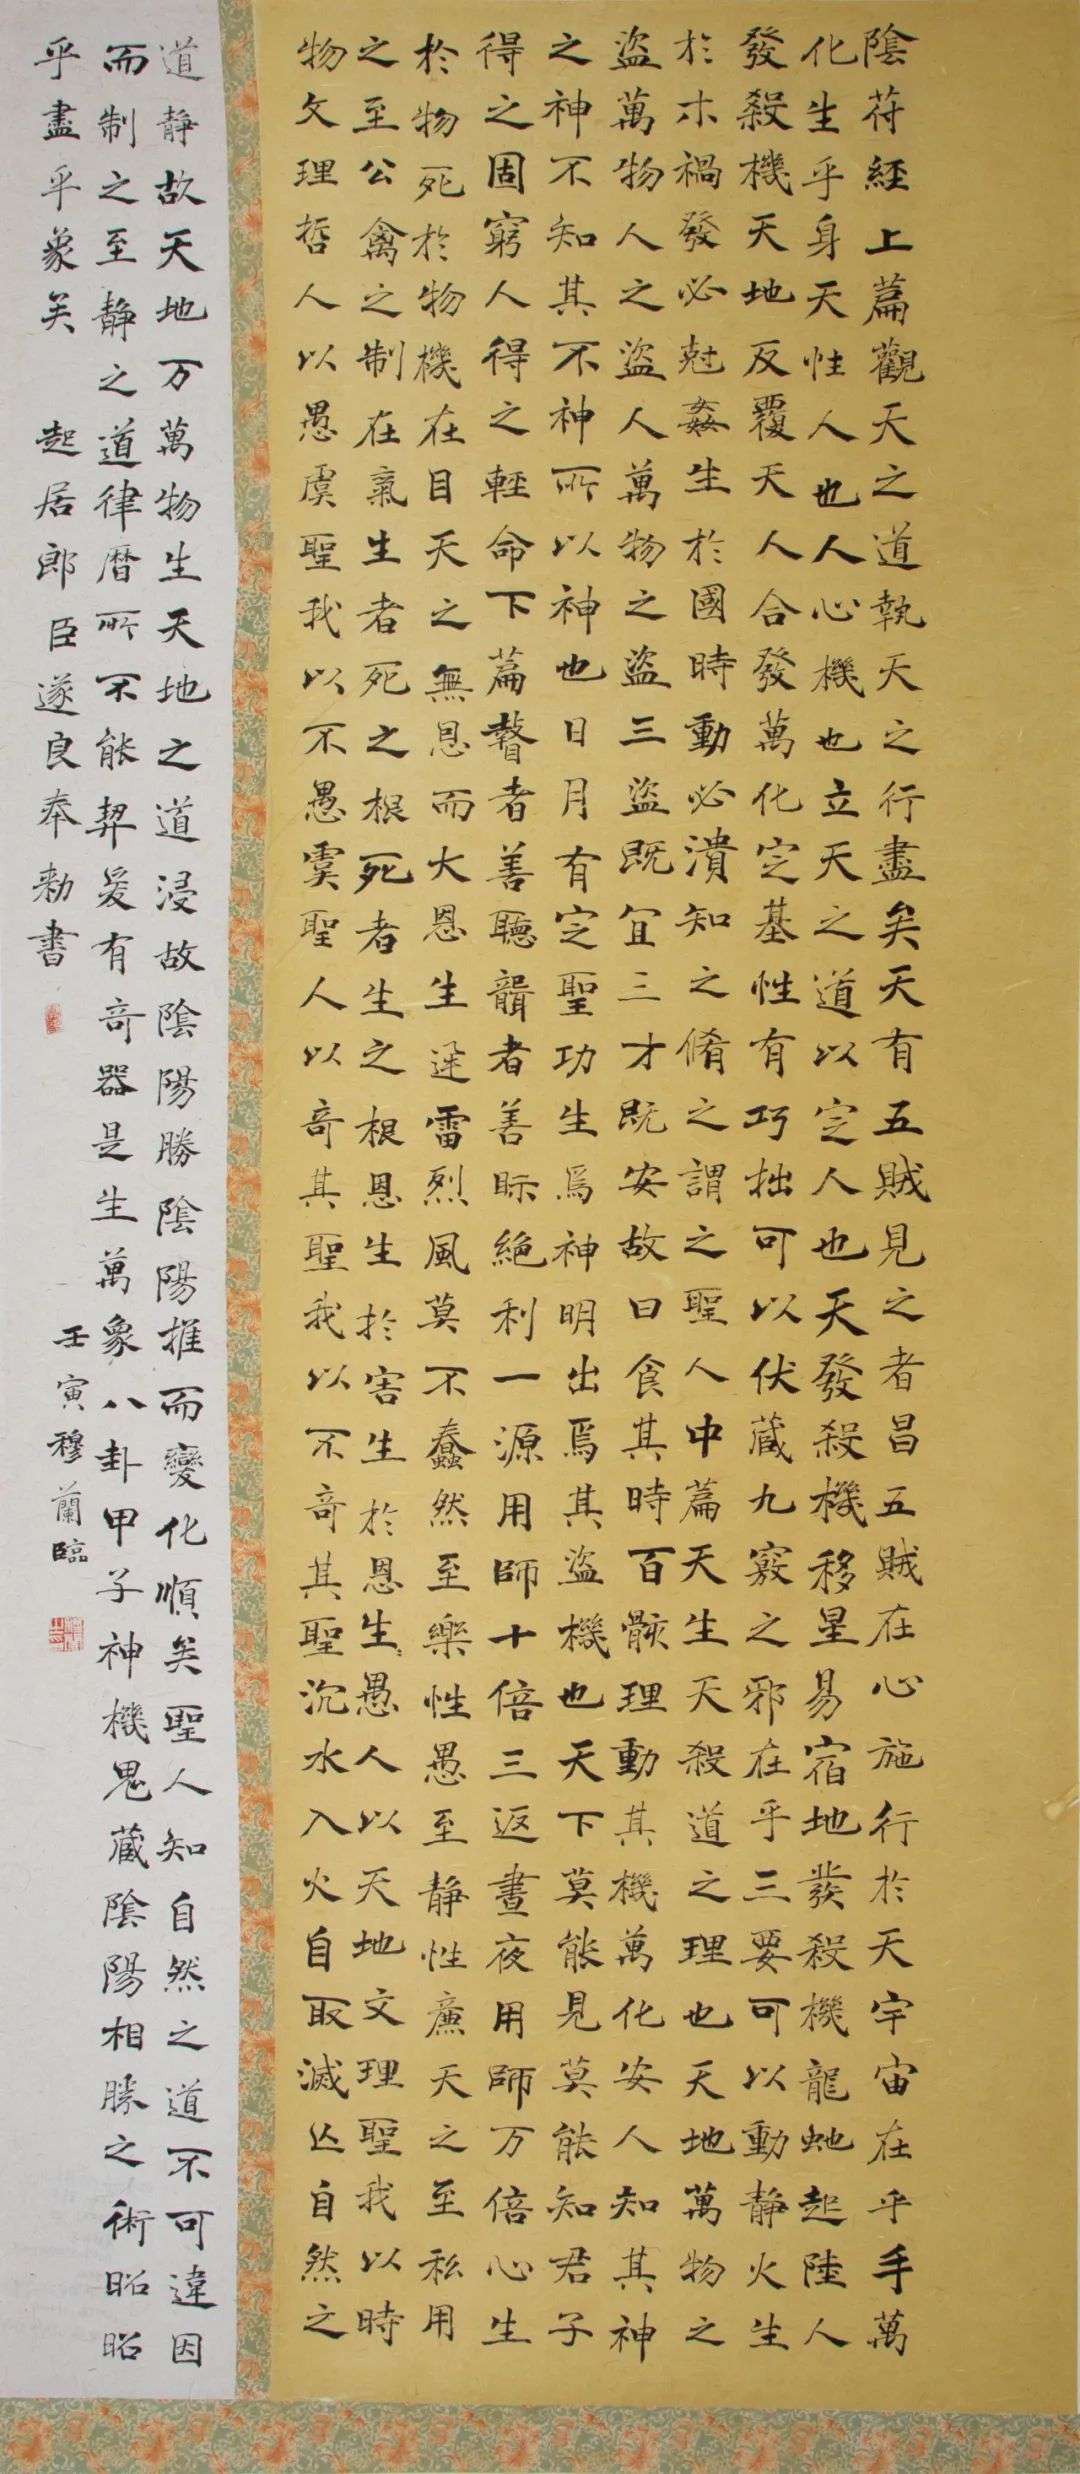 陰符經上篇觀天之道執天之行盡矣天有五賊見之者昌五賊在心施行於天宇宙在乎手萬
化生乎身天性人也人心機也立天之道以定人也天發殺機移星易宿地發殺機龍虵起陸人
發殺機天地反覆天人合發萬化定基性有巧拙可以伏藏九竅之邪在乎三要可以動靜火生
於木禍發必尅姦生於國時動必潰知之脩之謂之聖人中篇天生天殺道之理也天地萬物之
盜萬物人之盜人萬物之盜三盜既宜三才既安故曰食其時百骸理動其機萬化安人知其神
之神不知其不神所以神也日月有定聖功生焉神明出焉其盜機也天下莫能見莫能知君子
得之固窮人得之輕命下篇瞽者善聽聾者善眎絕利一源用師十倍三返晝夜用師万倍心生
於物死於物機在目天之無恩而大恩生迅雷烈風莫不蠢然至樂性愚至靜性廉天之至私用
之至公禽之制在氣生者死之根死者生之根恩生於害生於恩生愚人以天地文理聖我以時
物文理哲人以愚虞聖我以不愚虞聖人以奇其聖我以不奇其聖沉水入火自取滅亡自然之
道靜故天地万萬物生天地之道浸故陰陽勝陰陽推而變化順矣聖人知自然之道不可違因
而制之至靜之道律曆所不能契爰有奇器是生萬象八卦甲子神機鬼藏陰陽相勝之術昭昭
乎盡乎象矣 起居郎臣遂良奉勅書
壬寅穆蘭臨